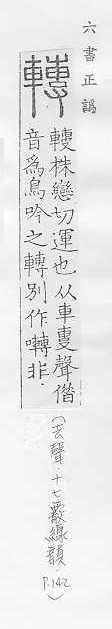 六書正譌
轉
轉株戀切運也从車叀聲偕
音爲鳥吟之轉別作囀非
(去聲·十七霰線韻
P.142)